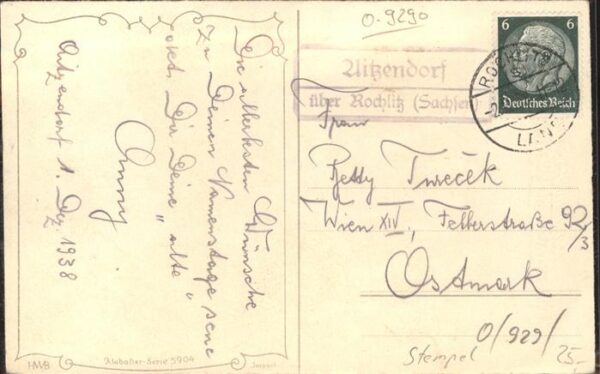 Die allerbesten Wünsche
zu Deinem Namenstage sen-
det Dir Deine „alte"
Anny
Aitzendorf 1. Dez. 1938
HWB
Alabaster-Serie 5904
O-9290
Aitzendorf
über Rochlitz (Sachsen)
6 6
Deutsches Reich
ROCHLITZ
LAND
Frau
Betty Tureček
Wien XIV, Felberstraße 92/3
Ostmark
O/929/
Stempel
25-